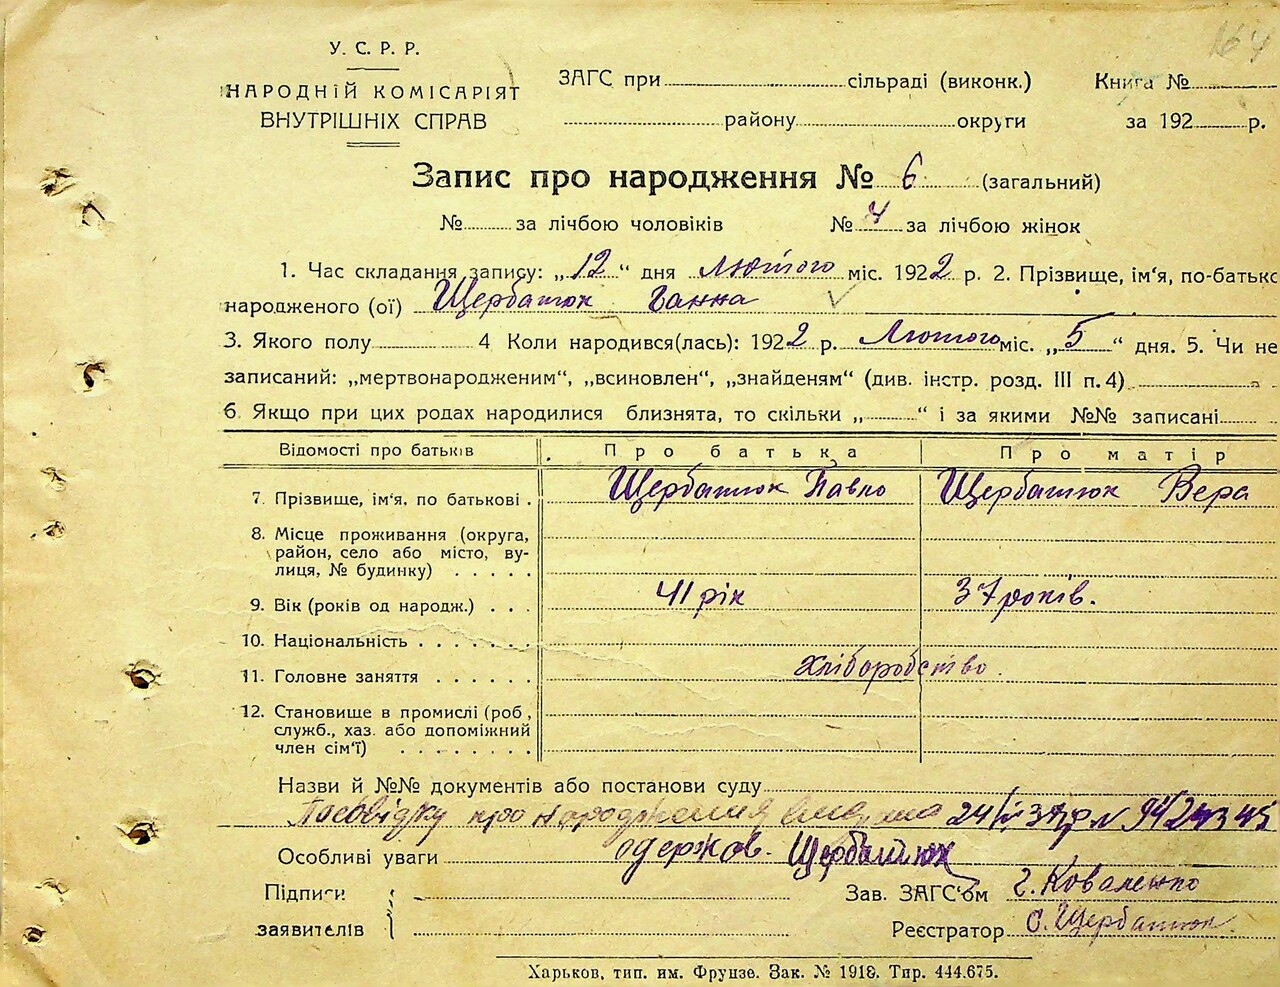 164
У. С. Р. Р.
НАРОДНІЙ КОМІСАРІЯТ
ВНУТРІШНІХ СПРАВ
ЗАГС при сільраді (виконк.) Книга №
району округи за 192 р.
Запис про народження № 6 (загальний)
№ за лічбою чоловіків № 4 за лічбою жінок
1. Час складання запису: „12“ дня Лютого міс. 1922 р. 2. Прізвище, ім'я, по-батько
народженого (ої) Щербатюк Ганна
3. Якого полу 4 Коли народився(лась): 1922 р. Лютого міс. „5“ дня. 5. Чи не
записаний: „мертвонародженим“, „всиновлен“, „знайденям“ (див. інстр. розд. III п. 4)
6. Якщо при цих родах народилися близнята, то скільки „ “ і за якими №№ записані
Відомості про батьків Про батька Про матір
7. Прізвище, ім'я, по батькові . Щербатюк Павло Щербатюк Вера
8. Місце проживання (округа,
район, село або місто, ву-
лиця, № будинку) . . . . .
9. Вік (років од народж.) . . . 41 рік 37 років.
10. Національність . . . . . .
11. Головне заняття . . . . . . Хліборобство.
12. Становище в промислі (роб,
служб., хаз. або допоміжний
член сім'ї) . . . . . . .
Назви й №№ документів або постанови суду
Посвідку про народження 24
Особливі уваги одержов. Щербатюк
Підписи Зав. ЗАГС'ом Г. Коваленко
заявителів Реєстратор С. Щербатюк
Харьков, тип. им. Фрунзе. Зак. № 1918. Тир. 444.675.